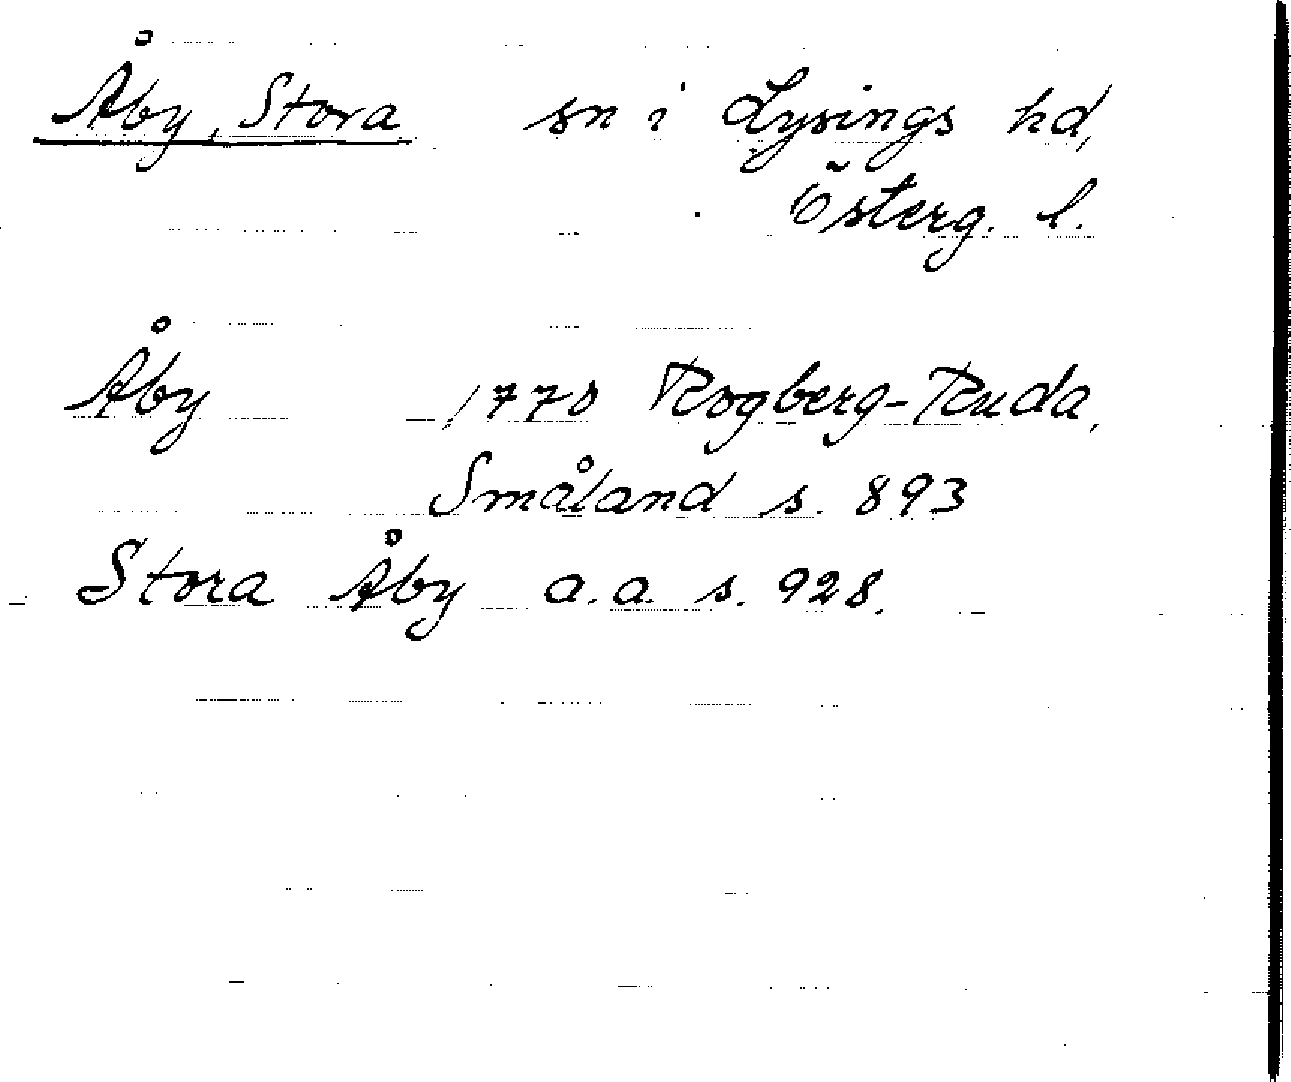 Åby, Stora sn i Lysings hd,
Österg. l.
Åby 1770 Rogberg-Ruda,
Småland s. 893
Stora Åby a.a. s. 928.